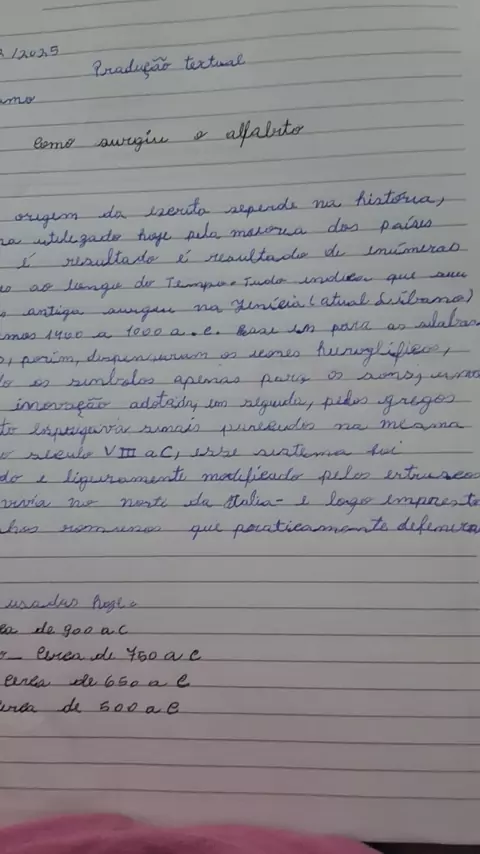 /2025
Produção textual
como surgiu o alfabeto
origem da escrita depende na história,
utilizado hoje pela maioria dos países
é resultado é resultado de inúmeras
ao longo do Tempo. Tudo indica que seu
antiga surgiu na Fenícia (atual Líbano)
1400 a 1000 a.c. Base em para as silabas
porém, dispensaram os icones hieroglíficos,
os simbolos apenas para os sons, uma
inovação adotada, em seguida, pelos gregos
sinais na mesma
século VIII aC, esse sistema foi
e ligeiramente modificado pelos etruscos
vivia no norte da Italia - e logo
romanos que praticamente
usadas hoje.
de 900 a C
cerca de 750 a C
cerca de 650 a C
cerca de 500 a C